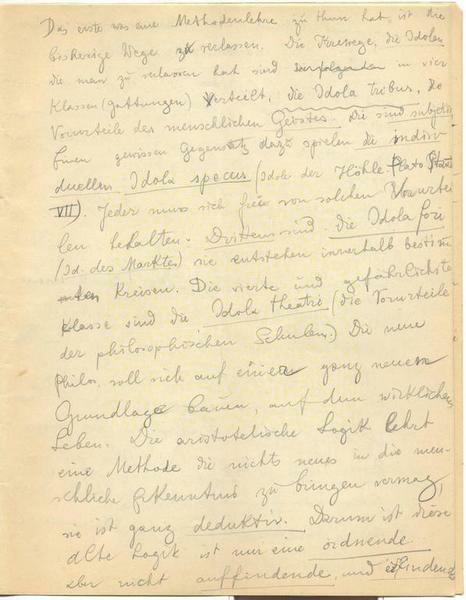 Das erste was eine Methodenlehre zu thun hat, ist die
bisherige Wege zu verlassen. Die Irrwege, die Idolen
die man zu verlassen hat sind in vier
Klassen (gattungen) verteilt, die Idola tribus, die
Vorurteile des menschlichen Geistes. Die sind subjectiv
Einen gewissen Gegensatz dazu spielen die indivi
duellen Idola specus (Idole der Höhle Plato Staat
VII). Jeder muss sich frei von solchen Vorurtei
len behalten. Drittens sind die Idola fori
(Id. des Marktes) sie entstehen innerhalb bestim
mten Kreisen. Die vierte und gefährlichste
Klasse sind die Idola theatri (die Vorurteile
der philosophischen Schulen.) Die neue
Philos. soll sich auf einer ganz neuen
Grundlage bauen, auf dem wirklichen
Leben. Die aristotelische Logik lehrt
eine Methode die nichts neues in die men-
schliche Erkenntnis zu bringen vermag,
sie ist ganz deduktiv. Darum ist diese
alte Logik ist nur eine ordnende
aber nicht auffindende, und erfindende